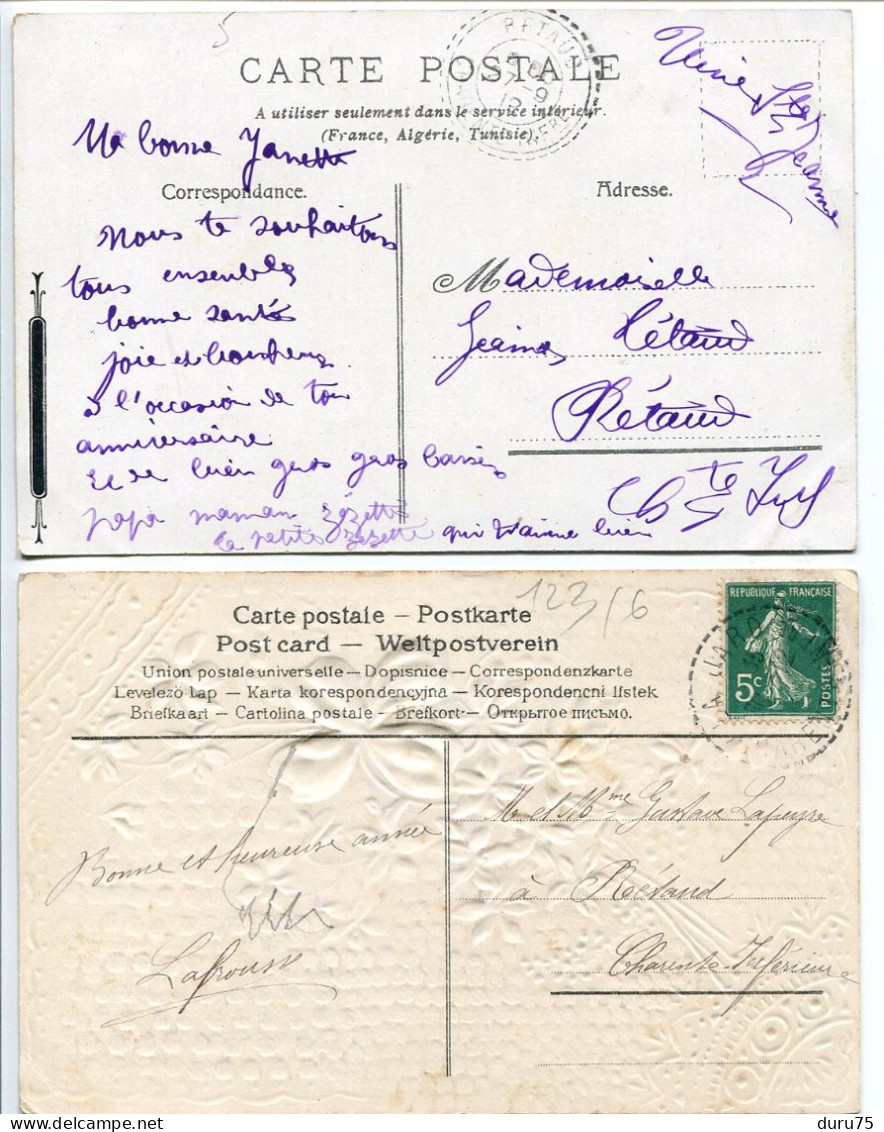 5
CARTE POSTALE
RETAUD
A utiliser seulement dans le service intérieur.
(France, Algérie, Tunisie).
Ma bonne Janette
Correspondance.
Adresse.
Nous te souhaitons
tous ensemble
bonne santé
joie et bonheur
à l'occasion de ton
anniversaire
et de bien gros gros baisers
papa maman Zézette
la petite Zézette qui t'aime bien
Mademoiselle
Jeanne Rétaud
Rétaud
Ch Inf
123/6
Carte postale – Postkarte
Post card – Weltpostverein
Union postale universelle – Dopisnice – Correspondenzkarte
Levelezö Lap – Karta korespondencyjna – Korespondencni lístek
Briefkaart – Cartolina postale – Brefkort – Открытое письмо.
REPUBLIQUE FRANÇAISE
5c
POSTES
Bonne et heureuse année
M et Mme Gustave Lapeyre
à Rétaud
Charente Inférieure
duru75